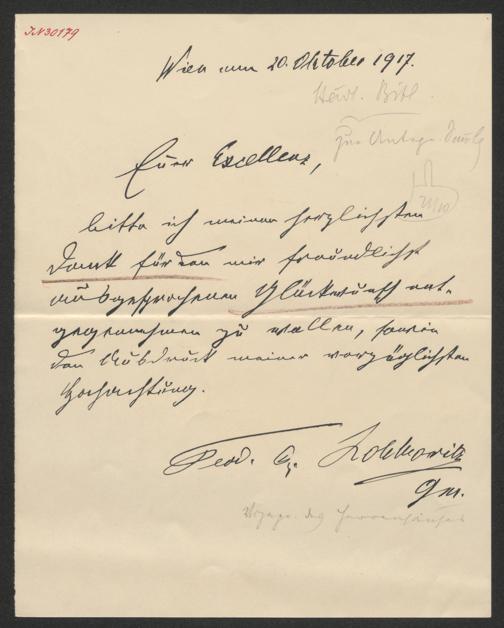 IN 30179
Wien am 20. Oktober 1917.
Städt. Bibl.
zur
23/10
Euer Excellenz,
bitte ich meinen herzlichsten
Dank für den mir freundlichst
ausgesprochenen Glückwunsch ent-
gegennehmen zu wollen, sowie
den Ausdruck meiner vorzüglichsten
Hochachtung.
Ferd. Lobkowitz
Vizepr. des Herrenhauses